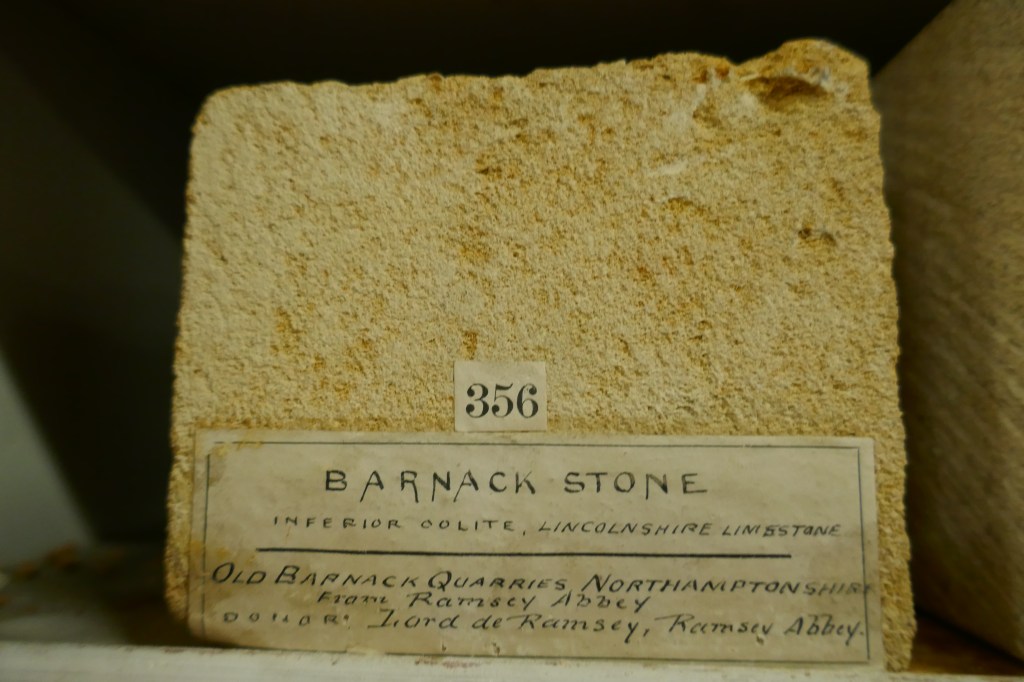 356
BARNACK STONE
INFERIOR OOLITE, LINCOLNSHIRE LIMESTONE
OLD BARNACK QUARRIES, NORTHAMPTONSHIRE
From Ramsey Abbey
DONOR: Lord de Ramsey, Ramsey Abbey.